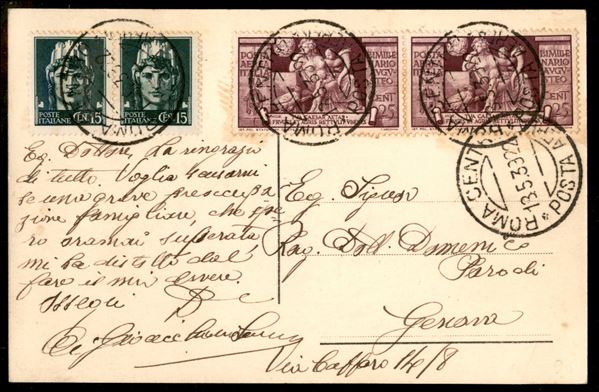 POSTE ITALIANE CENT 15
POSTE ITALIANE CENT 15
BIMILLENARIO AUGUSTEO
CENT 25
BIMILLENARIO AUGUSTEO
CENT 25
ROMA CENTRO
POSTA
13.5.39
Eg. Dottore, La ringrazio
di tutto. Voglia scusarmi
se una grave preoccupa
zione famigliare, che spe
ro oramai superata
mi ha distolto dal
fare il mio dovere.
Ossequi
Eg. Signor
Rag. Dott. Domenico
Parodi
Genova
Via Caffaro 14/8